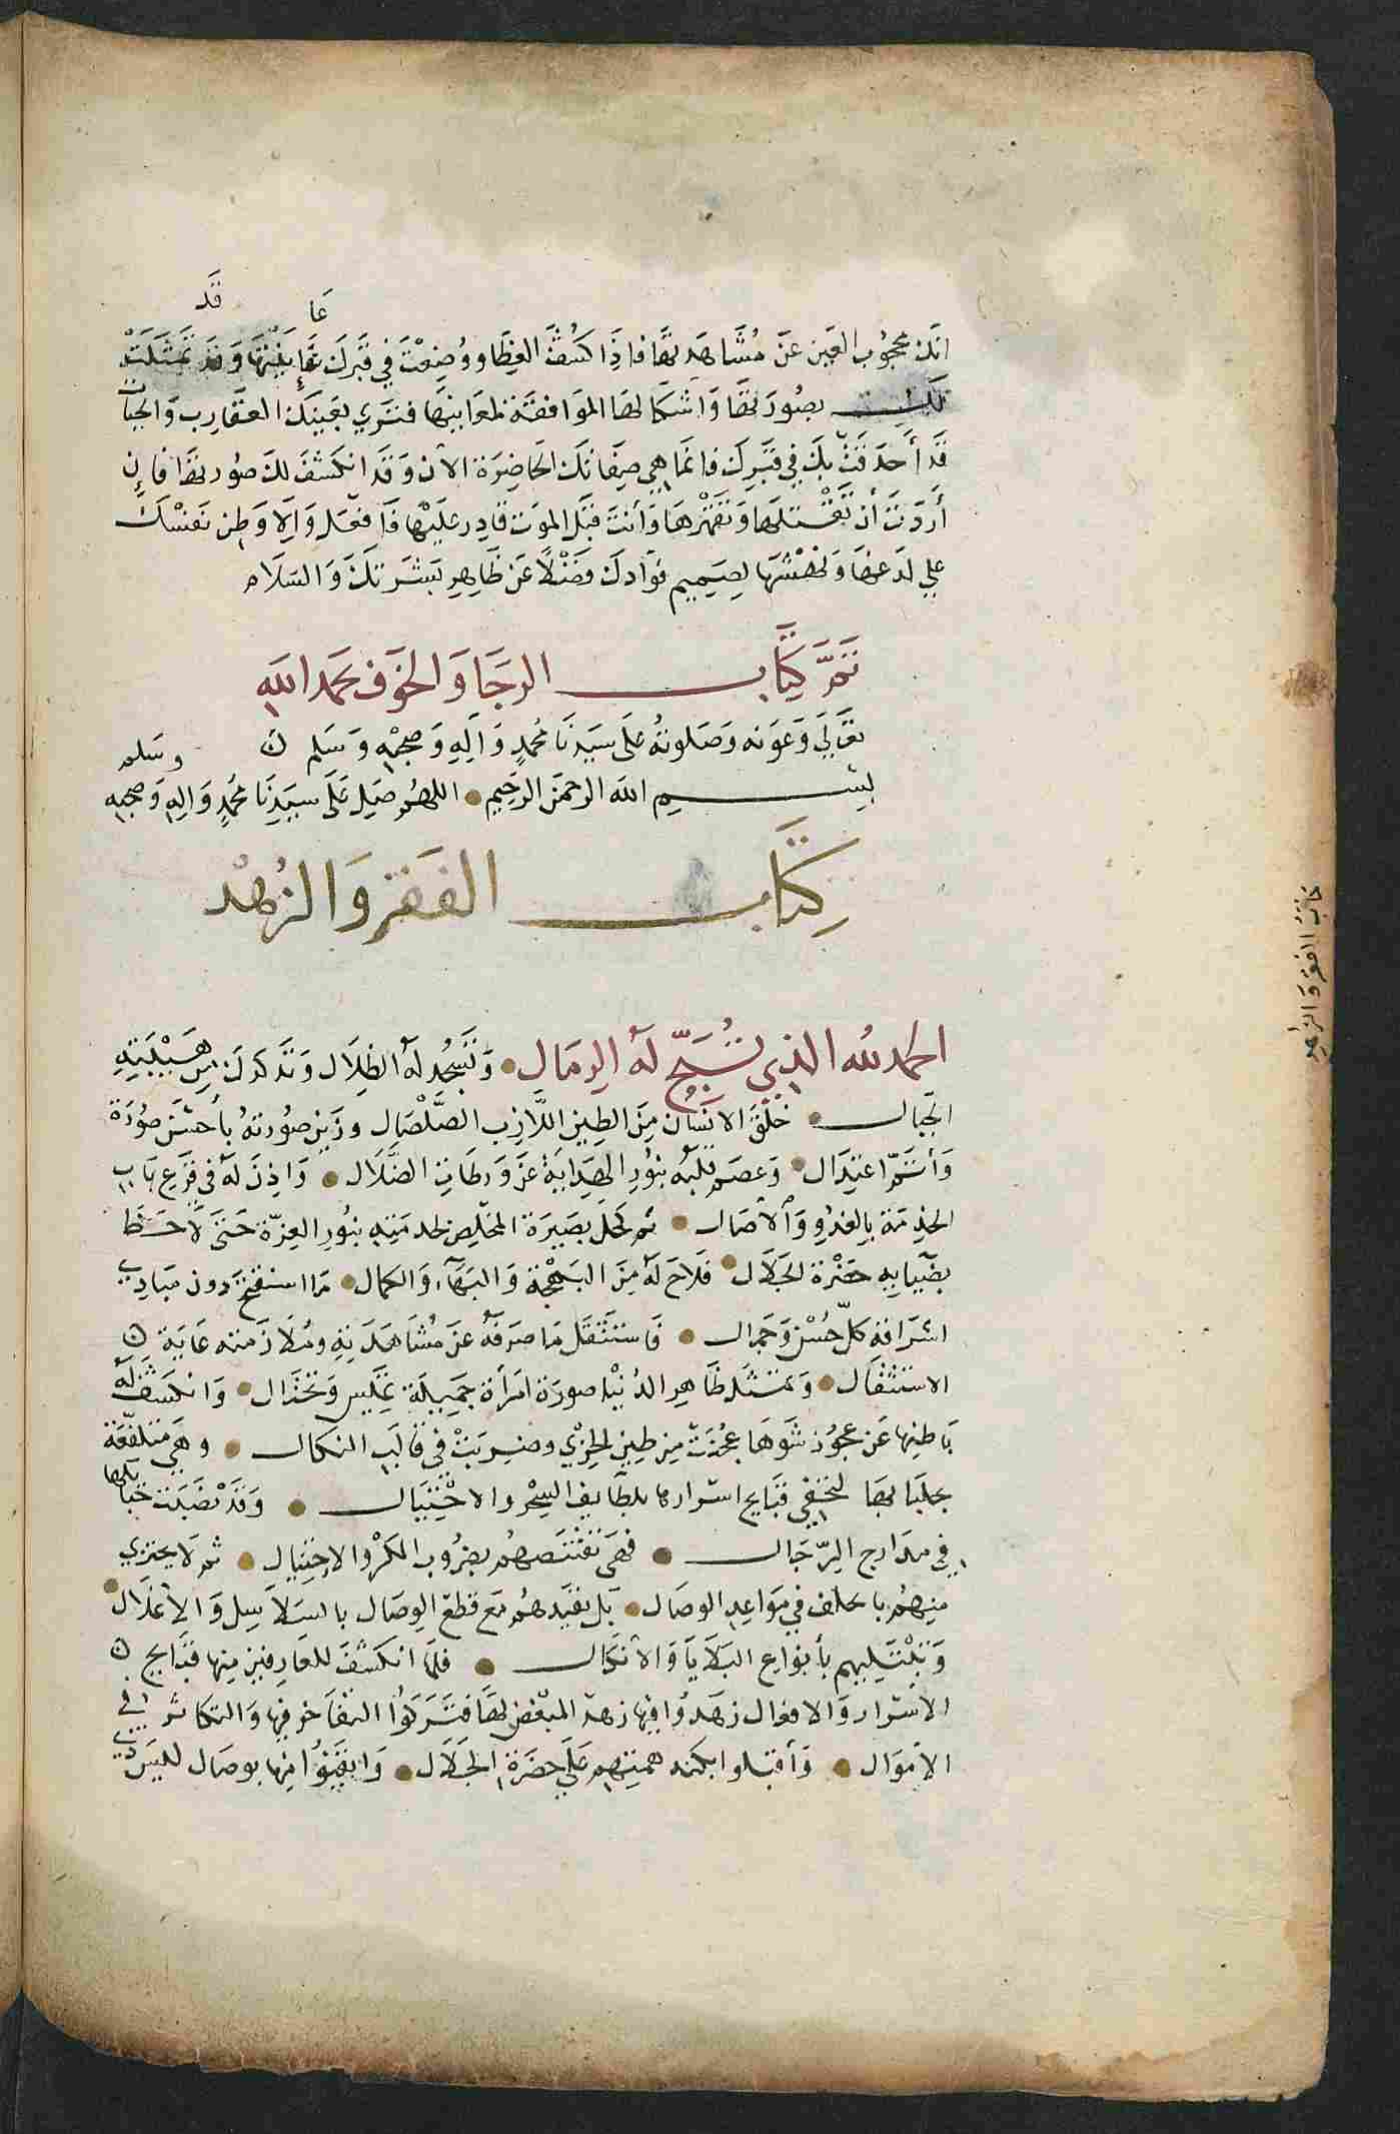 قد
عا
انك محجوب العين عن مشاهدتها فاذا كشف الغطا ووضعت في قبرك عاينتها وقد تمثلت
لك بصورتها واشكالها الموافقة لمعانيها فتري بعينك العقارب والحيات
قد أحدقت بك في قبرك فانما هي صفاتك الحاضرة الآن وقد انكشف لك صورتها فان
أردت أن تقتلها وتقهرها وأنت قبل الموت قادر عليها فافعل وإلا وطن نفسك
علي لدغها ونهشها لصميم فوادك فضلاً عن ظاهر بشرتك والسلام
تم كتاب الرجا والخوف بحمد الله
تعالي وعونه وصلوته على سيدنا محمد وآله وصحبه وسلم ن
وسلم
بسم الله الرحمن الرحيم اللهم صل على سيدنا محمد واله وصحبه
كتاب الفقر والزهد
كتاب الفقر والزهد
الحمد لله الذي تسبح له الرمال وتسجد له الظلال وتدكدك من هيبته
الجبال خلق الانسان من الطين اللازب الصلصال وزين صورته بأحسن صورة
وأتم اعتدال وعصم قلبه بنور الهداية عن ورطات الضلال واذن له في قرع باب
الخدمة بالغدو والآصال ثم كحل بصيرة المخلص لخدمته بنور العزة حتى لاحظ
بضيايه حضرة الجلال فلاح له من البهجة والبهآء والكمال ما استقبح دون مبادي
اشراقه كل حسن وجمال فاستثقل ما صرفه عن مشاهدته وملازمته غاية ن
الاستثقال وتمثل ظاهر الدنيا صورة امرأة جميلة تميس وتختال وانكشف له
باطنها عن عجوز شوها عجنت من طين الخزي وضربت في قالب النكال وهي متلففة
بجلبابها لتخفي قبايح اسرارها بلطايف السحر والاحتيال وقد نصبت حبايلها
في مدارج الرجال فهي تقتنصهم بضروب المكر والاحتيال ثم لا يجتزي
منهم بالخلف في مواعد الوصال بل تقيدهم مع قطع الوصال بالسلاسل والاغلال
وتبتليهم بأنواع البلايا والانكال فلما انكشف للعارفين منها قبايح ن
الاسرار والافعال زهدوا فيها زهد المبغض لها فتركوا التفاخر فيها والتكاثر في
الاموال وأقبلوا بكنه هممهم على حضرة الجلال واثقين منها بوصال ليس